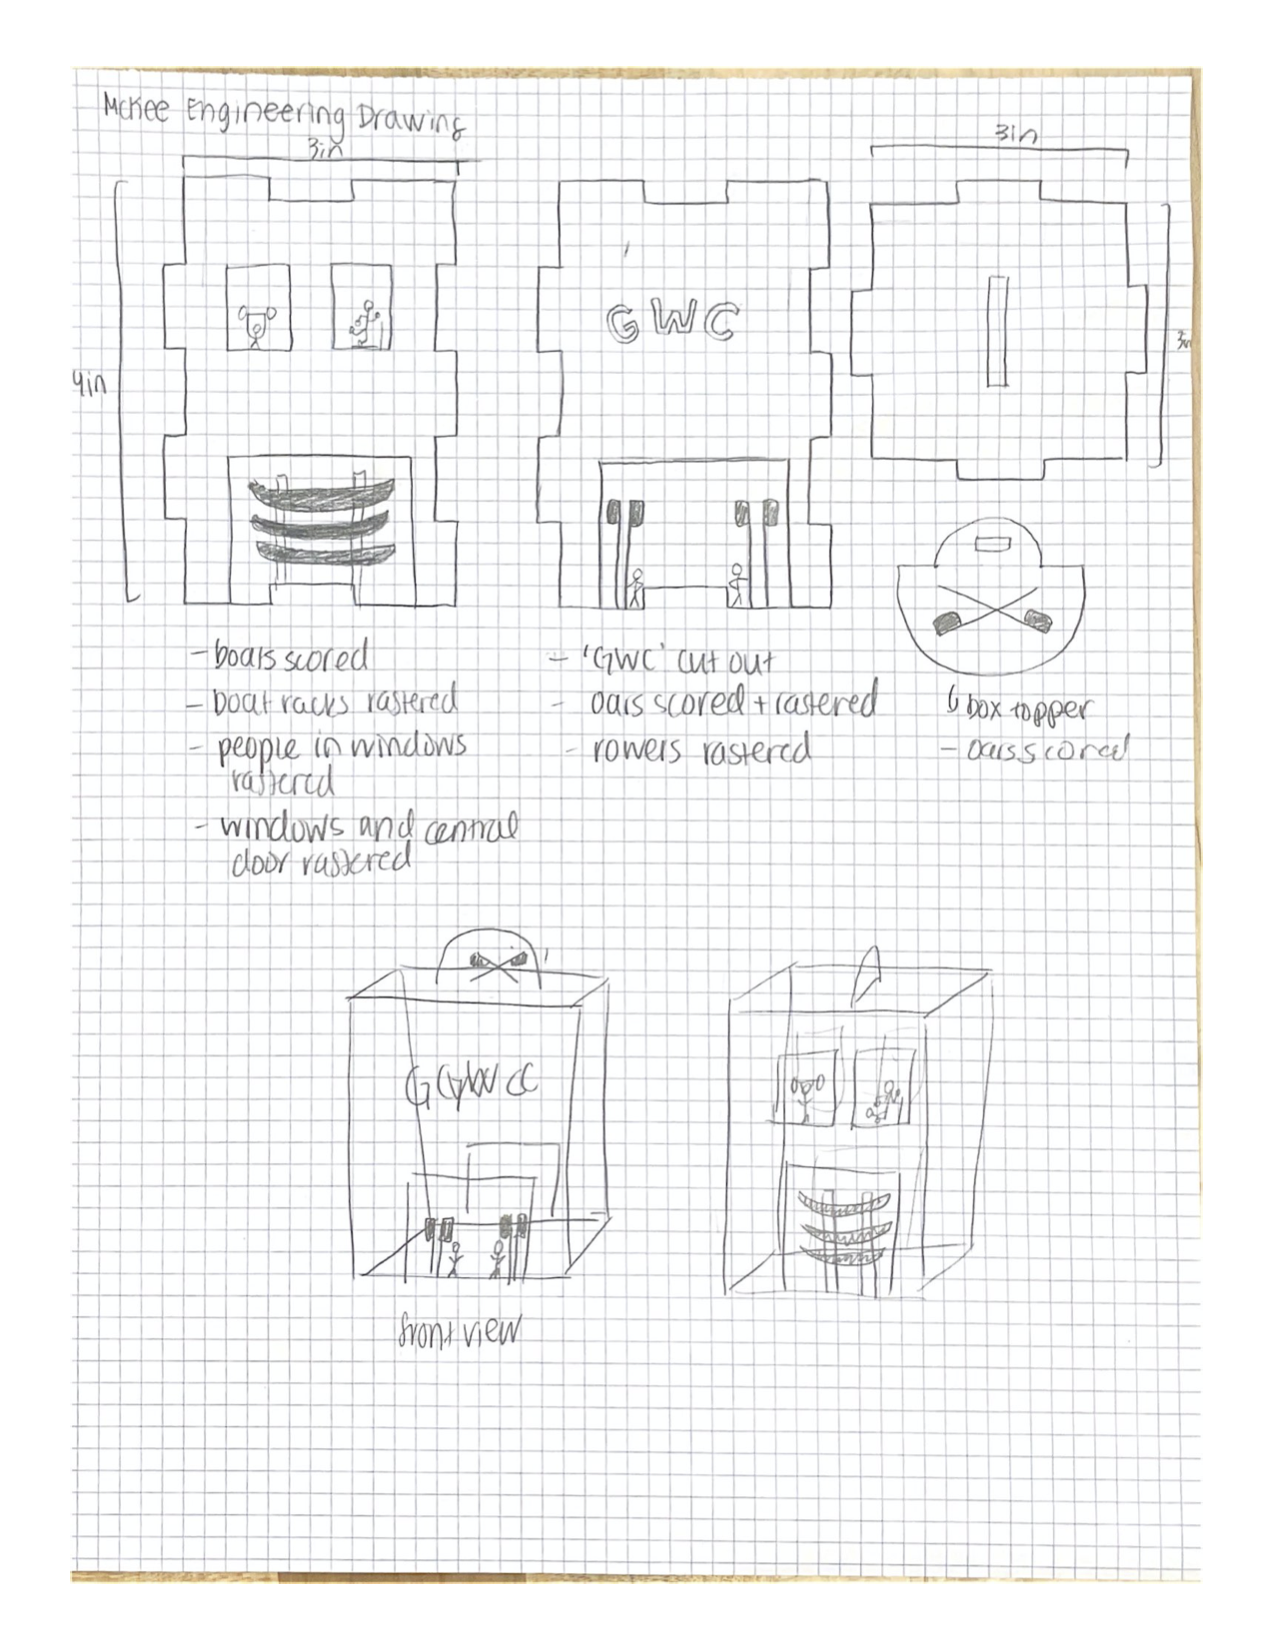 McKee Engineering Drawing
3in
3in
4in
GWC
3in
- boats scored
- boat racks rastered
- people in windows
rastered
- windows and central
door rastered
- 'GWC' cut out
- oars scored + rastered
- rowers rastered
box topper
- oars scored
front view